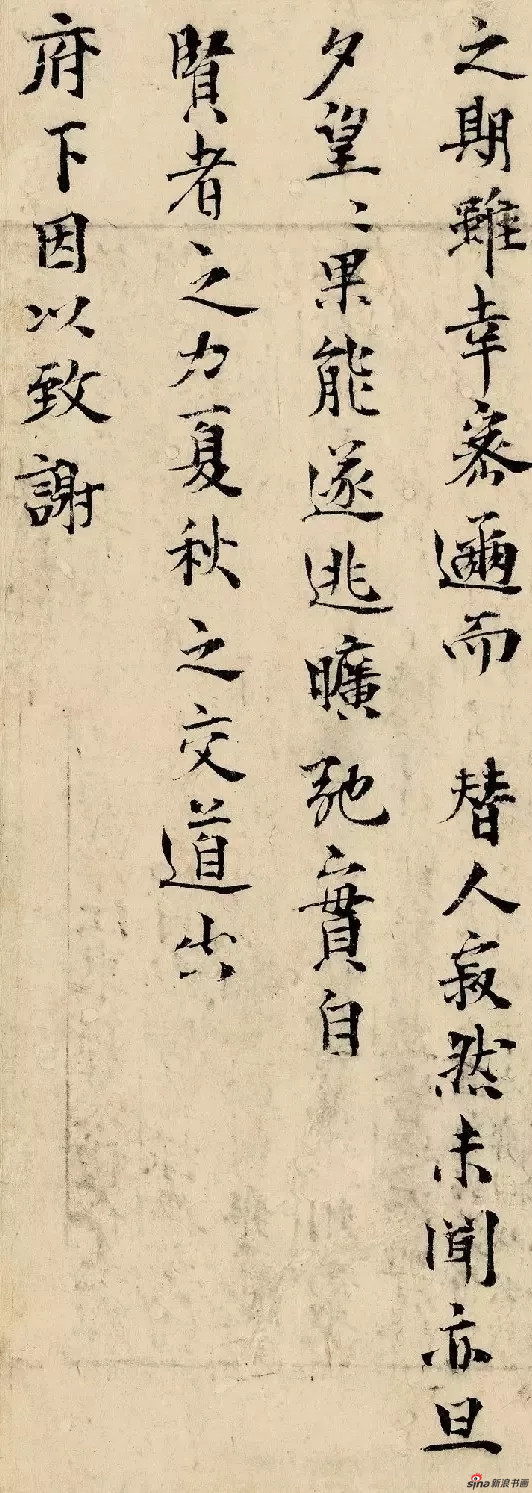 之期雖幸密邇而 替人寂然未聞亦旦
夕望〻果能遂逃曠弛實自
賢者之力夏秋之交道出
府下因以致謝
sina新浪书画